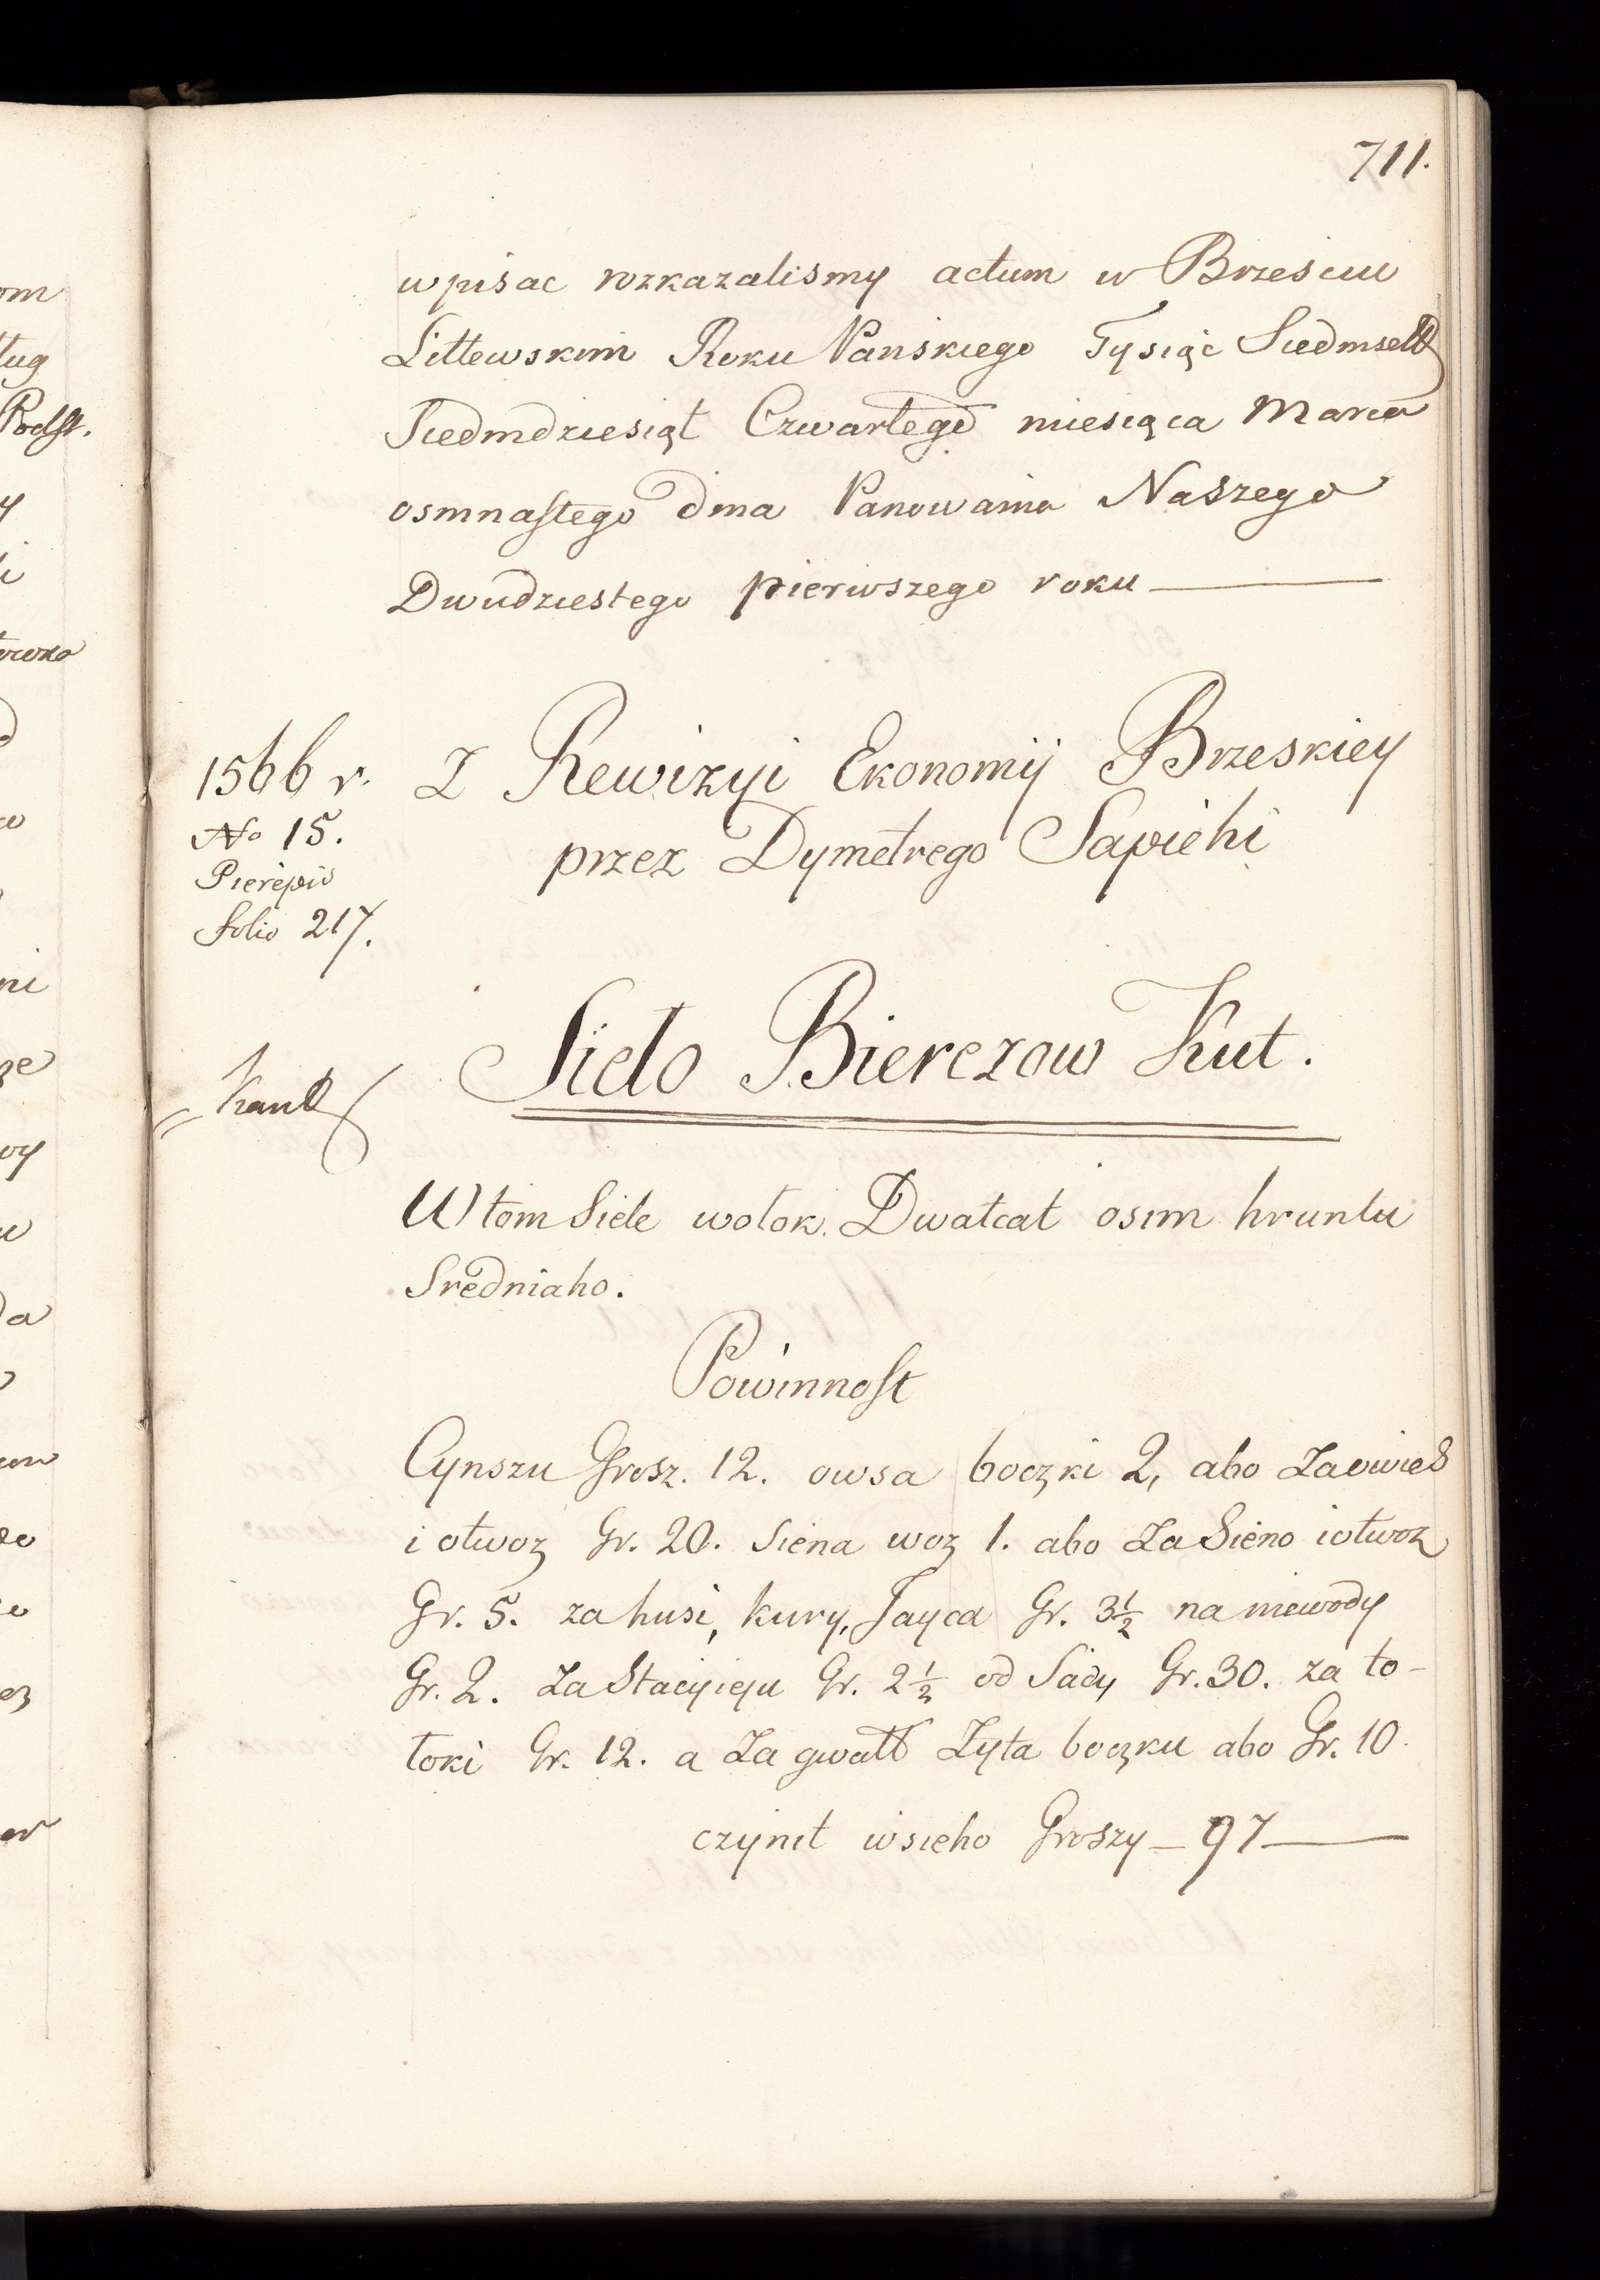 711.
wpisac rozkazalismy actum w Brzesciu
Littewskim Roku Panskiego Tysiąc Siedmsett
Siedmdziesiąt Czwartego miesiąca Marca
osmnastego dnia Panowania Naszego
Dwudziestego pierwszego roku
1566 r.
No 15.
Pierepis
folio 217.
Z Rewizyi Ekonomij Brzeskiey
przez Dymetrego Sapiehi
Sieło Bierezow Kut.
W tom Siele wołok. Dwatcat osim hruntu
Sredniaho.
Powinnost
Cynszu Grosz. 12. owsa boczki 2, abo Za owies
i otwoz Gr. 20. Siena woz 1. abo Za Sieno i otwoz
Gr. 5. za husi, kury, Jayca Gr. 3½ na niewody
Gr. 2. Za Stacyieju Gr. 2½ od Sady Gr. 30. za to-
łoki Gr. 12. a Za gwałt Żyta boczku abo Gr. 10.
czynit wsieho Groszy — 97